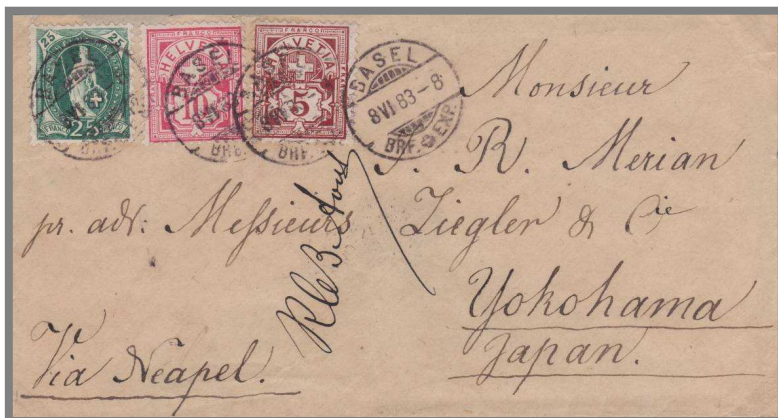 25 25
25
FRANCO
HELVETIA
10
FRANCO
HELVETIA
5
BASEL
8 VI 83-8
BRF. EXP.
Monsieur
J. R. Merian
pr. adr: Messieurs Ziegler & Cie
Yokohama
Japan.
Via Neapel.